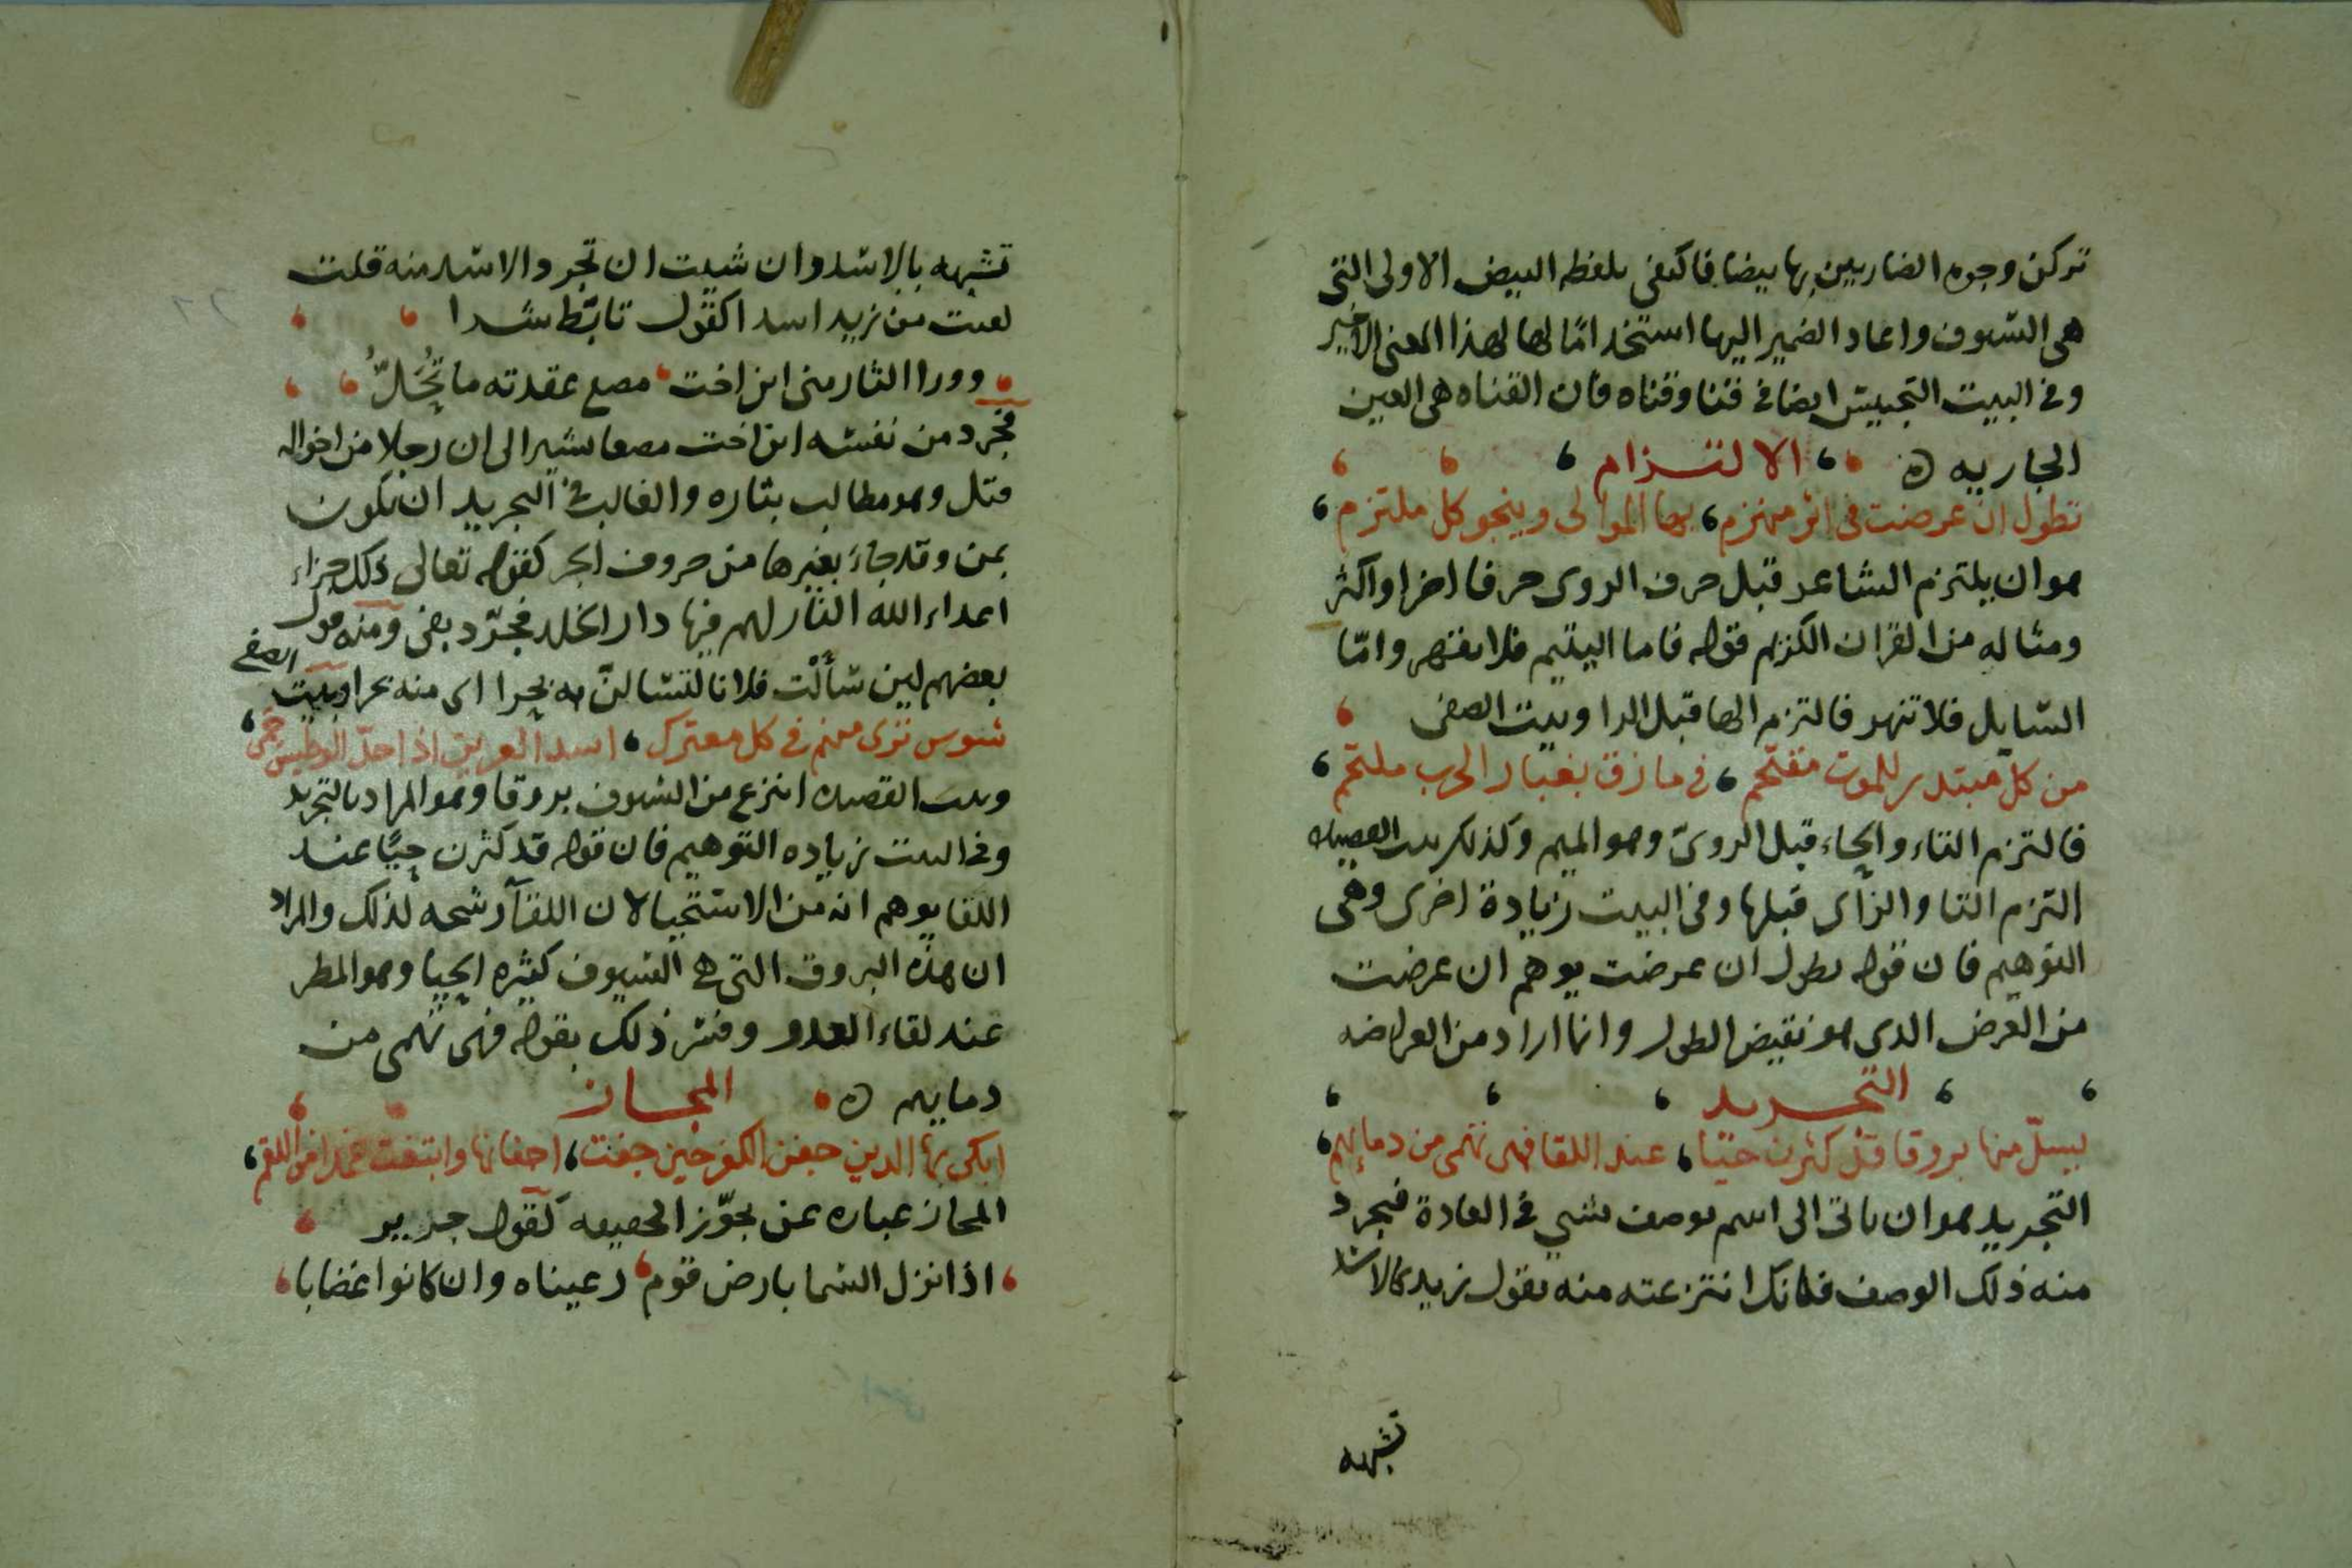 تركن وجوه الضاربين بها بيضا فاكتفى بلفظه البيض الاولى التى
هى السيوف واعاد الضمير اليها استخدامًا لها لهذا المعنى الاخير
وفى البيت التجنيس ايضا فى قنا وقناه فان القناه هى العين
الجاريه ه الالتزام
تطول ان عرضت فى اثر منهزم بها الموالى وينجو كل ملتزم
هو ان يلتزم الشاعر قبل حرف الروى حرفا اخرا واكثر
ومثاله من القران الكريم قوله فاما اليتيم فلا تقهر وامّا
السايل فلا تنهر فالتزم الها قبل الرا وبيت الصفى
من كلّ مبتدر للموت مقتحم فى مازق بغبار الحرب ملتحم
فالتزم التاء والحاء قبل الروىّ وهو الميم وكذلك بيت القصيده
التزم التا والزاى قبلها وفى البيت زيادة اخرى وهى
التوهيم فان قوله تطول ان عرضت يوهم ان عرضت
من العَرض الذى هو نقيض الطول وانما اراد من العراضه
التجريد
ليسلّ منها بروقا قد كثرن حيًا عند اللقا فهى تهمى من دمايهم
التجريد هو ان ياتى الى اسم بوصف شيى فى العادة فيجرد
منه ذلك الوصف فكانك انتزعته منه تقول زيد كالاسد
تشبهه
تشبهه بالاسد وان شيت ان تجرد الاسد منه قلت
لقيت من زيد اسدا كقول تابّط شرا
وورا الثار منى ابن اخت مصع عقدته ما تُحَلُّ
فجرد من نفسه ابن اخت مصعا يشير الى ان رجلا من اخواله
قتل وهو مطالب بثاره والغالب فى التجريد ان يكون
بمن وقد جاء بغيرها من حروف الجر كقوله تعالى ذلك جزاء
اعداء الله النار لهم فيها دار الخلد فجرّد بفى ومنه قول
بعضهم لين سَألْت فلانا لتسالنّ به بحرا اى منه بحرا وبيت الصفى
شوس ترى منهم فى كل معترك اسد العرين اذا حلّ الوطيس حمى
وبيت القصيده انتزع من السيوف بروقا وهو المراد بالتجريد
وفى البيت زياده التوهيم فان قوله قد كثرن حيًا عند
اللقا يوهم انه من الاستحيا لان اللقآ رشحه لذلك والمراد
ان هذه البروق التى هى السيوف كثيره الحيا وهو المطر
عند لقاء العدو وفسر ذلك بقوله فهى تهمى من
دمايهم ه المجاز
ابكى بها الدين جفن الكفر حين جفت اجفانها وابتغت غمدا من اللقم
المجاز عباره عن تجوّز الحقيقه كقول جرير
اذا نزل السما بارض قوم رعيناه وان كانوا غضابا